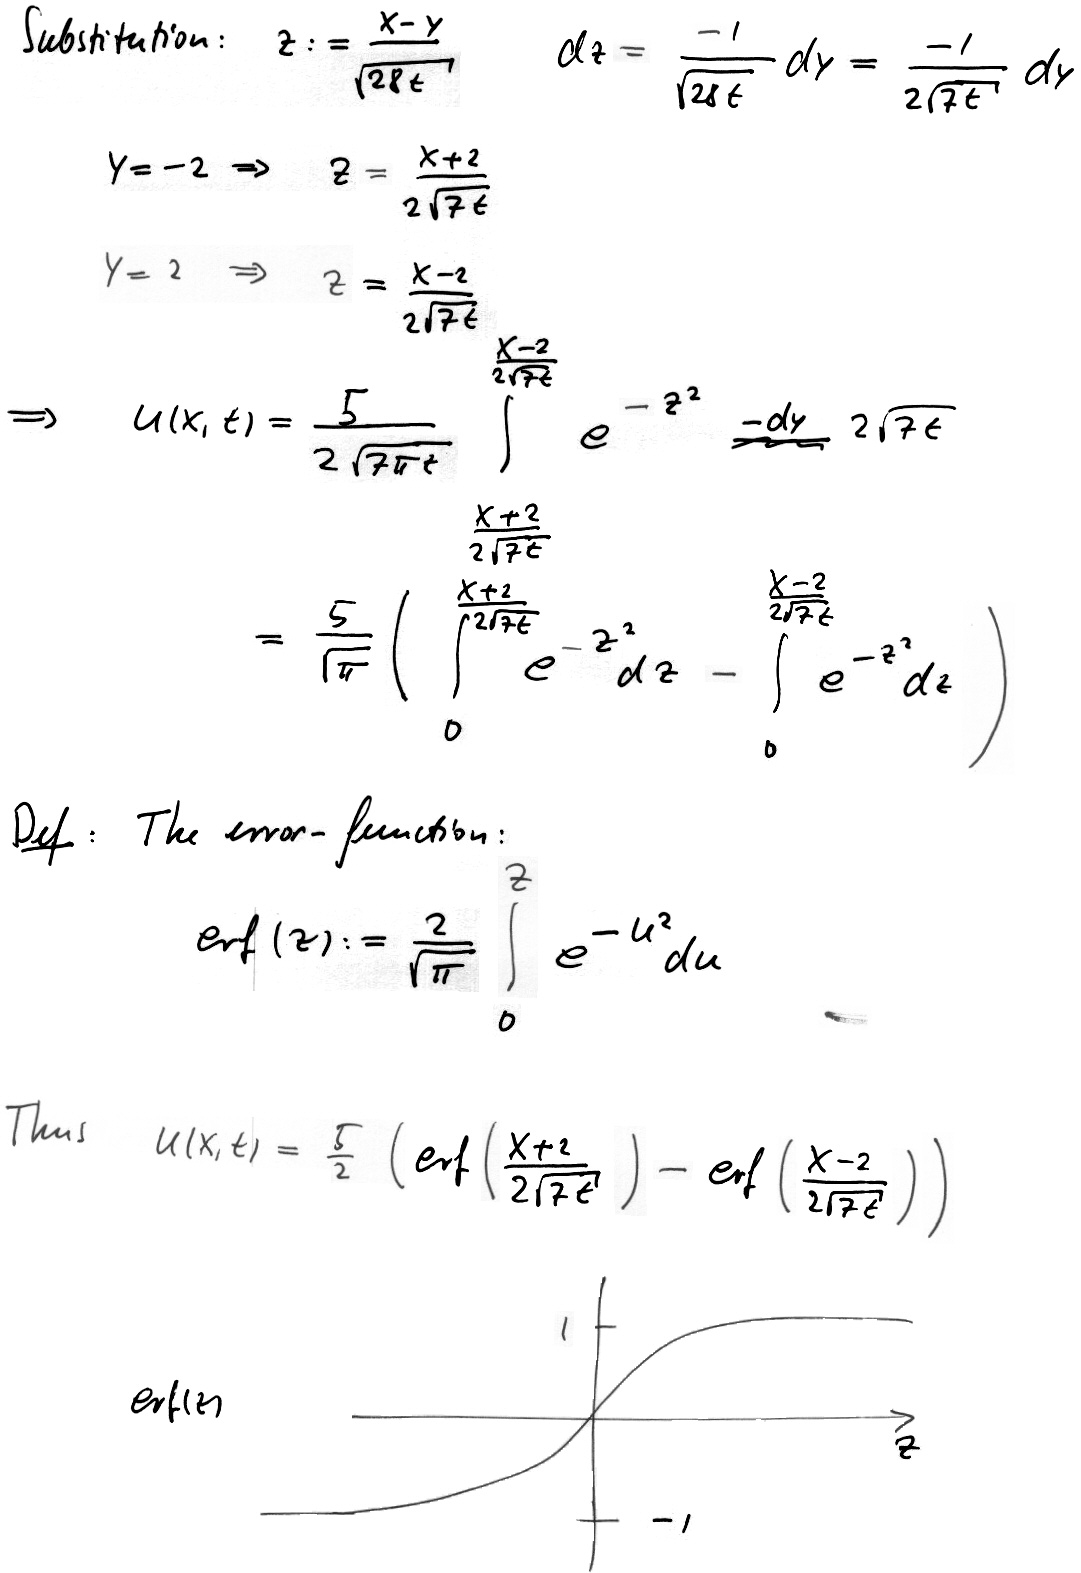 Substitution: z := \frac{x-y}{\sqrt{28t}} dz = \frac{-1}{\sqrt{28t}} dy = \frac{-1}{2\sqrt{7t}} dy
y = -2 ⇒ z = \frac{x+2}{2\sqrt{7t}}
y = 2 ⇒ z = \frac{x-2}{2\sqrt{7t}}
⇒ u(x,t) = \frac{5}{2\sqrt{7πt}} \int_{\frac{x+2}{2\sqrt{7t}}}^{\frac{x-2}{2\sqrt{7t}}} e^{-z^2} -dy 2\sqrt{7t}
= \frac{5}{\sqrt{π}} ( \int_0^{\frac{x+2}{2\sqrt{7t}}} e^{-z^2} dz - \int_0^{\frac{x-2}{2\sqrt{7t}}} e^{-z^2} dz )
Def: The error-function:
erf(z) := \frac{2}{\sqrt{π}} \int_0^z e^{-u^2} du
Thus u(x,t) = \frac{5}{2} ( erf( \frac{x+2}{2\sqrt{7t}} ) - erf( \frac{x-2}{2\sqrt{7t}} ) )
1
erf(z)
z
-1